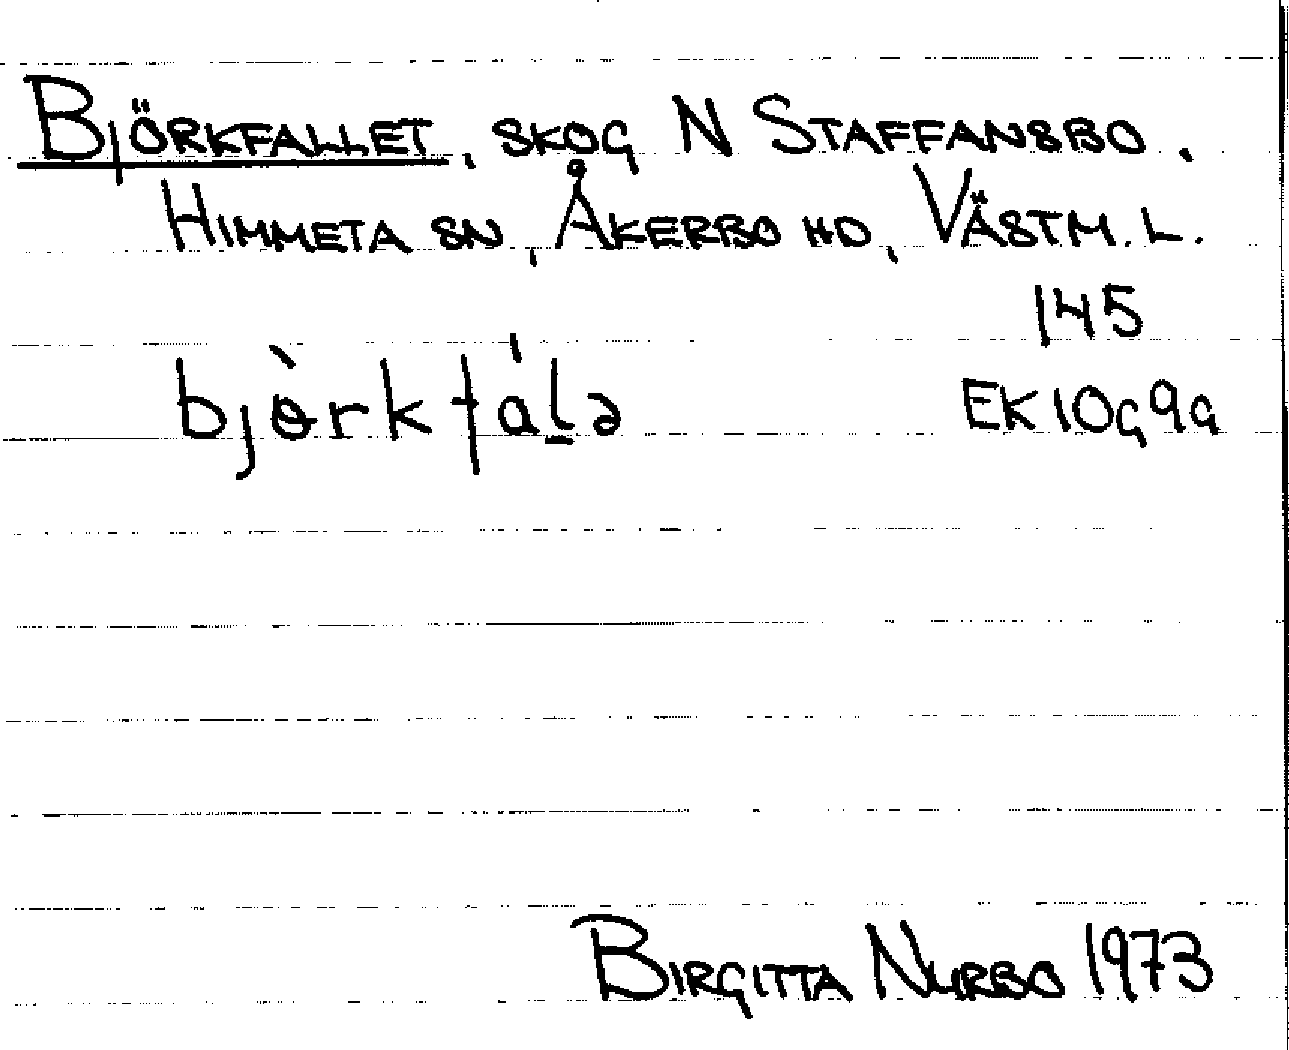 Björkfallet, skog N Staffansbo.
Himmeta sn, Åkerbo hd, Västm. l.
145
bjɵ̀rkfál̲ə
EK 10g9g
Birgitta Nurbo 1973